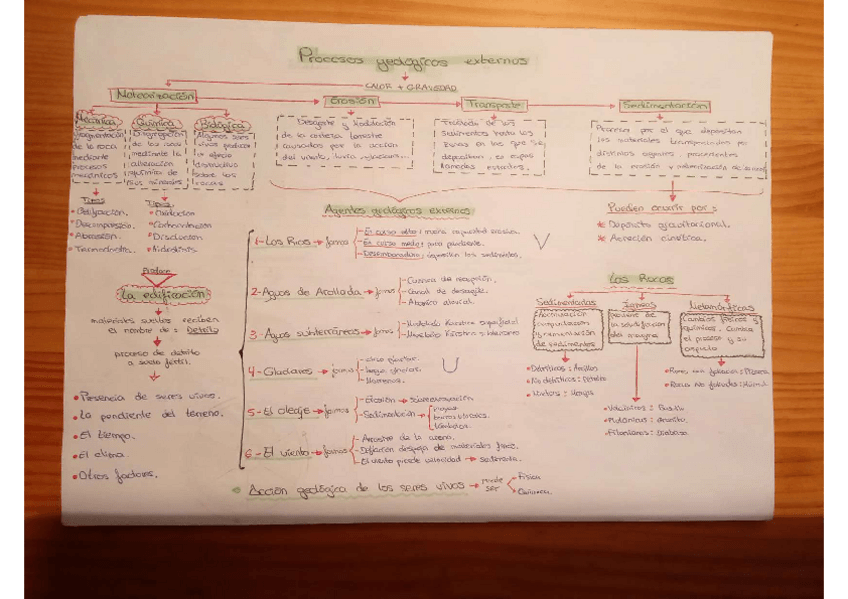 Procesos geológicos externos
CALOR + GRAVEDAD
Meteorización
Erosión
Transporte
Sedimentación
Mecánica
Química
Biológica
Fragmentación
de la roca
mediante
procesos
mecánicos
Disgregación
de las rocas
mediante la
alteración
química de
sus minerales
Algunos seres
vivos producen
un efecto
destructivo
sobre las
rocas
Desgaste y Modelación
de la corteza terrestre
causados por la acción
del viento, lluvia, glaciares...
Traslado de los
sedimentos hasta las
zonas en las que se
depositan, en capas
llamadas estratos.
Proceso por el que depositan
los materiales transportados por
distintos agentes, procedentes
de la erosión y meteorización
Tipos
• Gelifracción.
• Descompresión.
• Abrasión.
• Termoclastia.
Tipos
• Oxidación
• Carbonatación
• Disolución
• Hidrólisis
Pueden ocurrir por:
* Depósito gravitacional.
* Acreción cinética.
Produce
La edificación
materiales sueltos reciben
el nombre de: Detrito
proceso de detrito
a suelo fértil.
• Presencia de seres vivos.
• La pendiente del terreno.
• El tiempo.
• El clima.
• Otros factores.
Agentes geológicos externos
1- Los Ríos → forman
- El curso alto: mucha capacidad erosiva.
- El curso medio: poca pendiente.
- Desembocadura: depositan los sedimentos.
2- Aguas de Arollada → forman
- Cuenca de recepción.
- Canal de desagüe.
- Abanico aluvial.
3- Aguas subterráneas → forman
- Modelado Kárstico superficial
- Modelado Kárstico interno
4- Glaciares → forman
- circo glaciar.
- lengua glaciar.
- Morrenas.
5- El oleaje → forman
- Erosión →
- Sedimentación →
playas
6- El viento → forman
- Arrastre de la arena.
- Deflación despeja de materiales finos.
- El viento pierde velocidad → sedimenta.
• Acción geológica de los seres vivos → puede ser
Física
Química
Las Rocas
Sedimentarias
Ígneas
Metamórficas
acumulación
compactación
y cementación
de sedimentos
procede de
la solidificación
del magma
Cambios físicos y
químicos. Cambia
• Detríticas: Arcillas
• No detríticas:
• Volcánicas: Basalto
• Plutónicas: Granito
• Filonianas:
• Roca con foliación: Pizarra
• Roca no foliada: Mármol